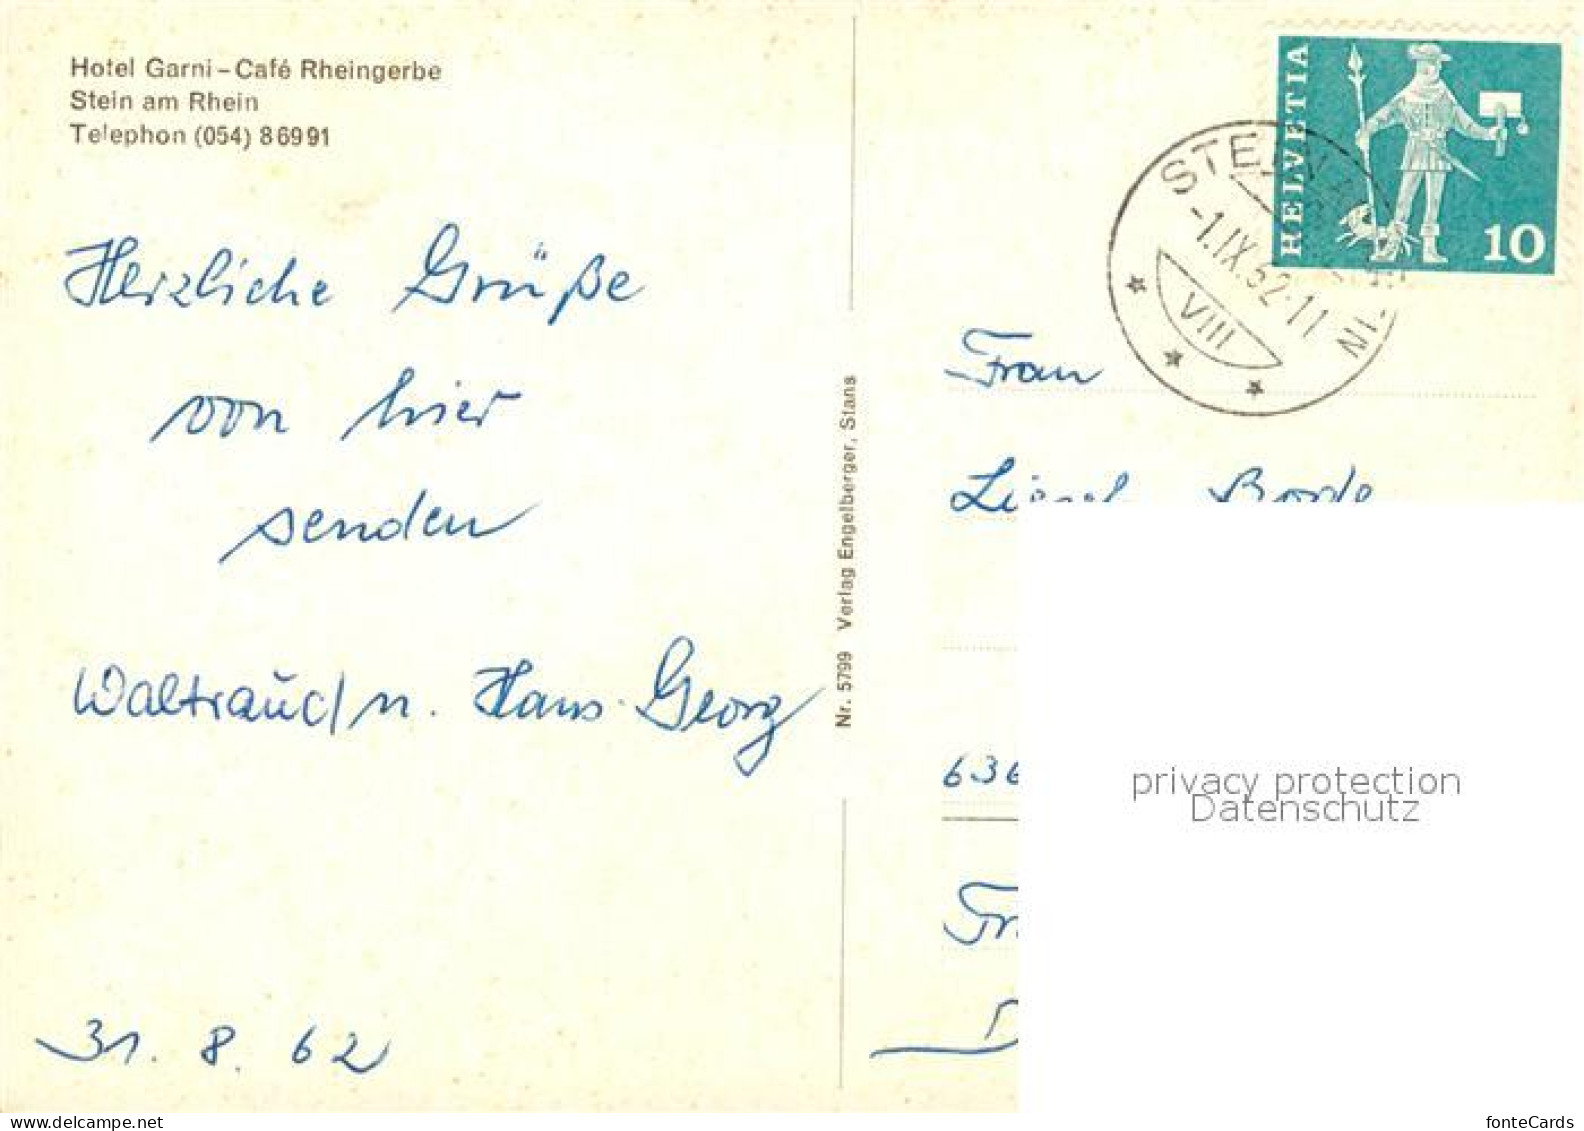 Hotel Garni – Café Rheingerbe
Stein am Rhein
Telephon (054) 8 69 91
Herzliche Grüße
von hier
senden
Waltraud u. Hans-Georg
31. 8. 62
Nr. 5799 Verlag Engelberger, Stans
HELVETIA
10
STEIN
-1.IX.62-11
VIII
Frau
636
privacy protection
Datenschutz
fonteCards